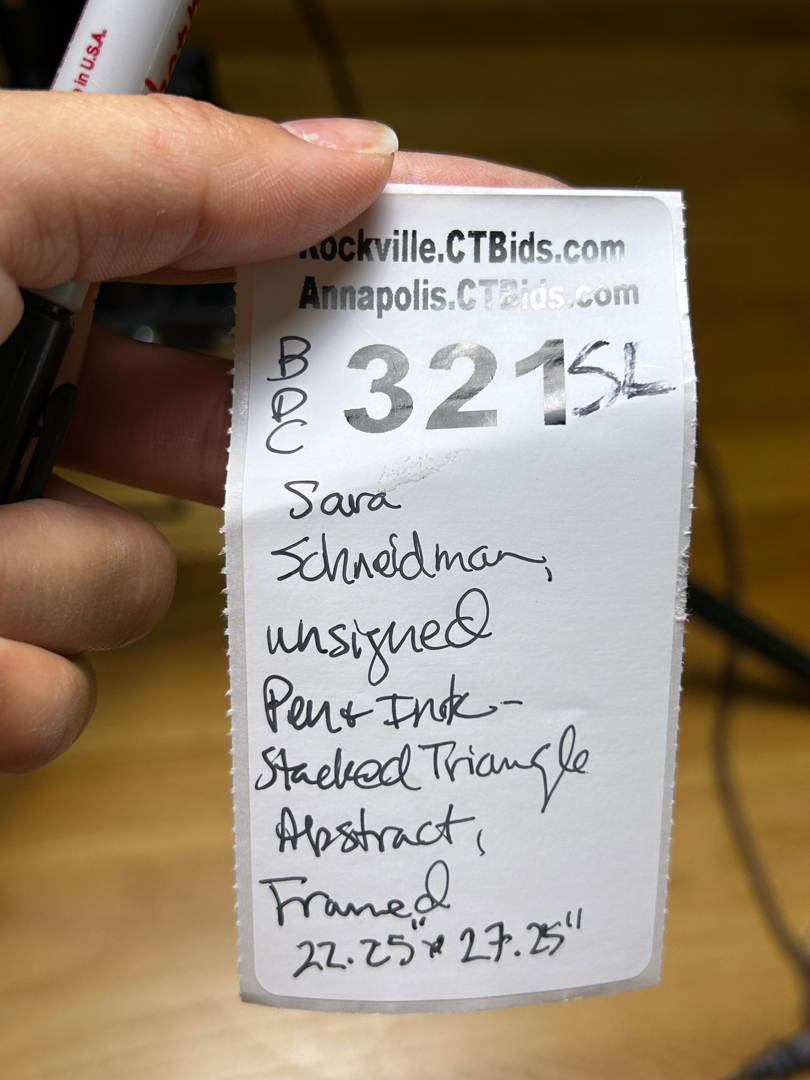 in U.S.A.
Rockville.CTBids.com
Annapolis.CTBids.com
B
D
C
321 SL
Sara
Schneidman,
unsigned
Pen & Ink -
Stacked Triangle
Abstract,
Framed
22.25" x 27.25"